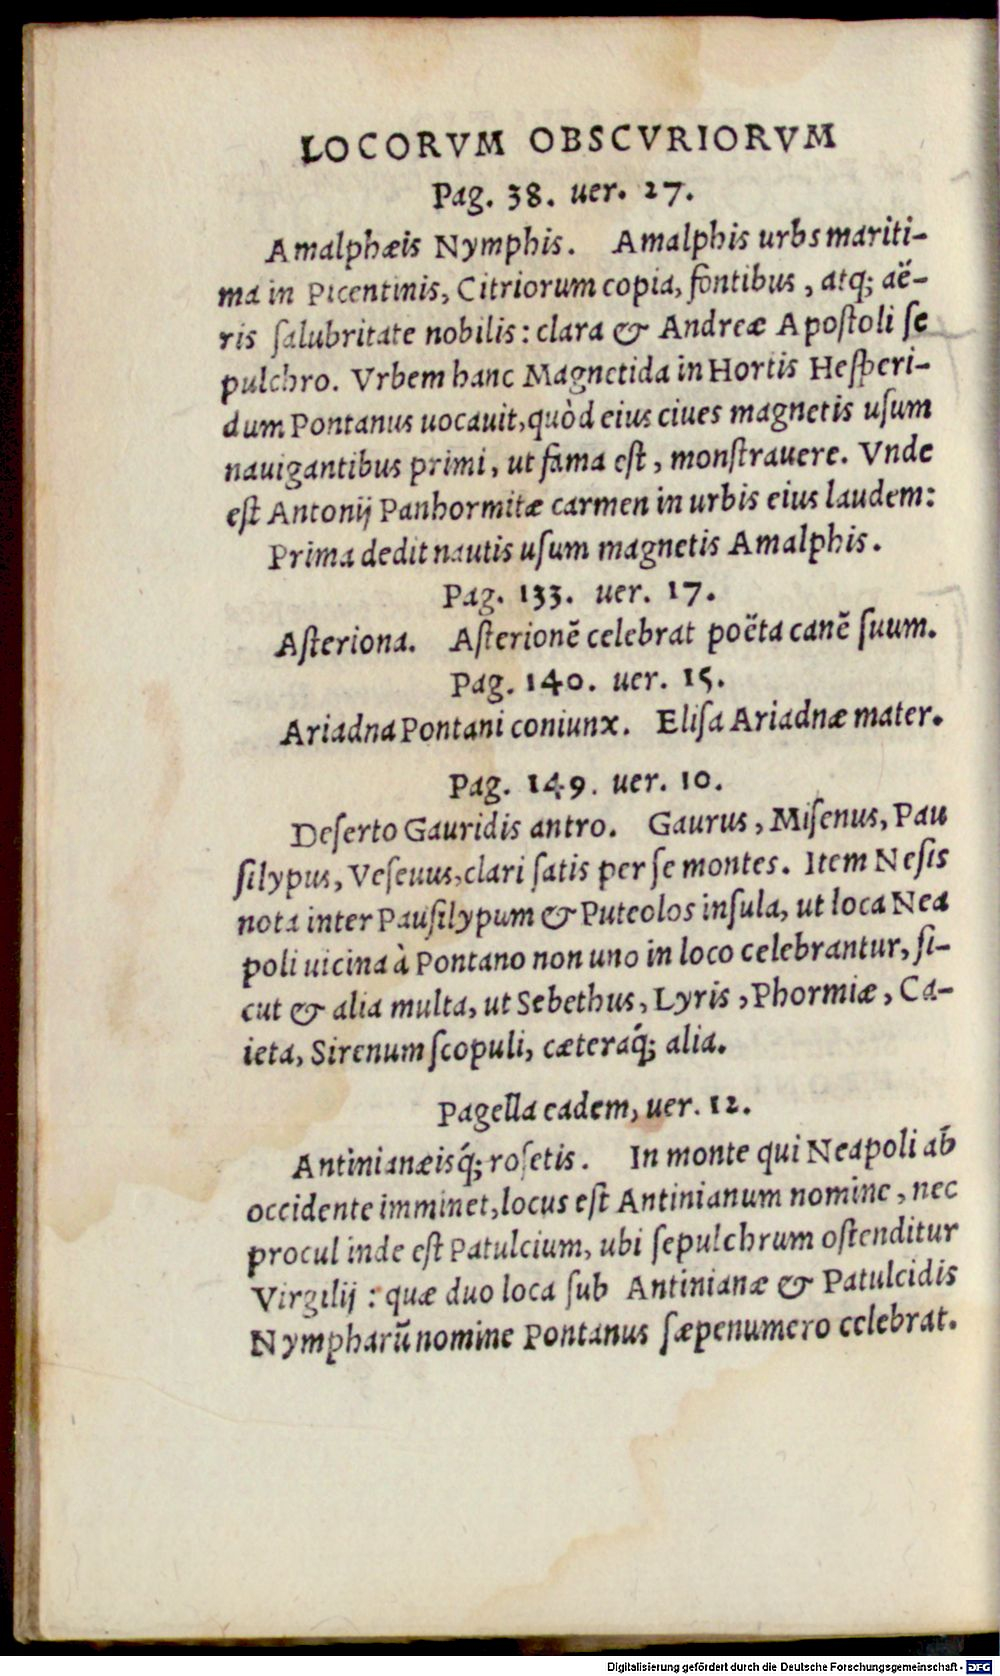 LOCORVM OBSCVRIORVM
Pag. 38. uer. 27.
Amalphæis Nymphis. Amalphis urbs mariti-
ma in Picentinis, Citriorum copia, fontibus, atq; aë-
ris ſalubritate nobilis: clara & Andreæ Apoſtoli ſe
pulchro. Vrbem hanc Magnetida in Hortis Heſperi-
dum Pontanus uocauit, quòd eius ciues magnetis uſum
nauigantibus primi, ut fama eſt, monſtrauere. Vnde
eſt Antonij Panhormitæ carmen in urbis eius laudem:
Prima dedit nautis uſum magnetis Amalphis.
Pag. 133. uer. 17.
Aſteriona. Aſterionē celebrat poëta canē ſuum.
Pag. 140. uer. 15.
Ariadna Pontani coniunx. Eliſa Ariadnæ mater.
Pag. 149. uer. 10.
Deſerto Gauridis antro. Gaurus, Miſenus, Pau
ſilypus, Veſeuus, clari ſatis per ſe montes. Item Neſis
nota inter Pauſilypum & Puteolos inſula, ut loca Nea
poli uicina à Pontano non uno in loco celebrantur, ſi-
cut & alia multa, ut Sebethus, Lyris, Phormiæ, Ca-
ieta, Sirenum ſcopuli, cæteraq́; alia.
Pagella eadem, uer. 12.
Antinianæisq́; roſetis. In monte qui Neapoli ab
occidente imminet, locus eſt Antinianum nomine, nec
procul inde eſt Patulcium, ubi ſepulchrum oſtenditur
Virgilij: quæ duo loca ſub Antinianæ & Patulcidis
Nympharū nomine Pontanus ſæpenumero celebrat.
Digitalisierung gefördert durch die Deutsche Forschungsgemeinschaft - DFG